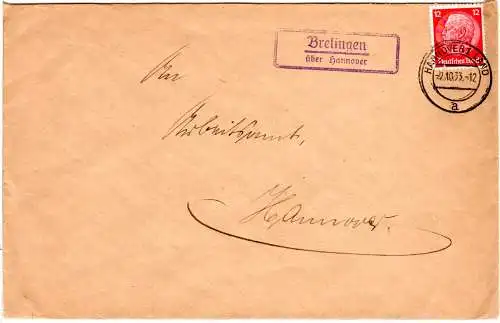 12 12
Deutsches Reich
Brelingen
über Hannover
HANNOVER LAND
-2.10.33.-12
a
An
Arbeitsamt,
Hannover.